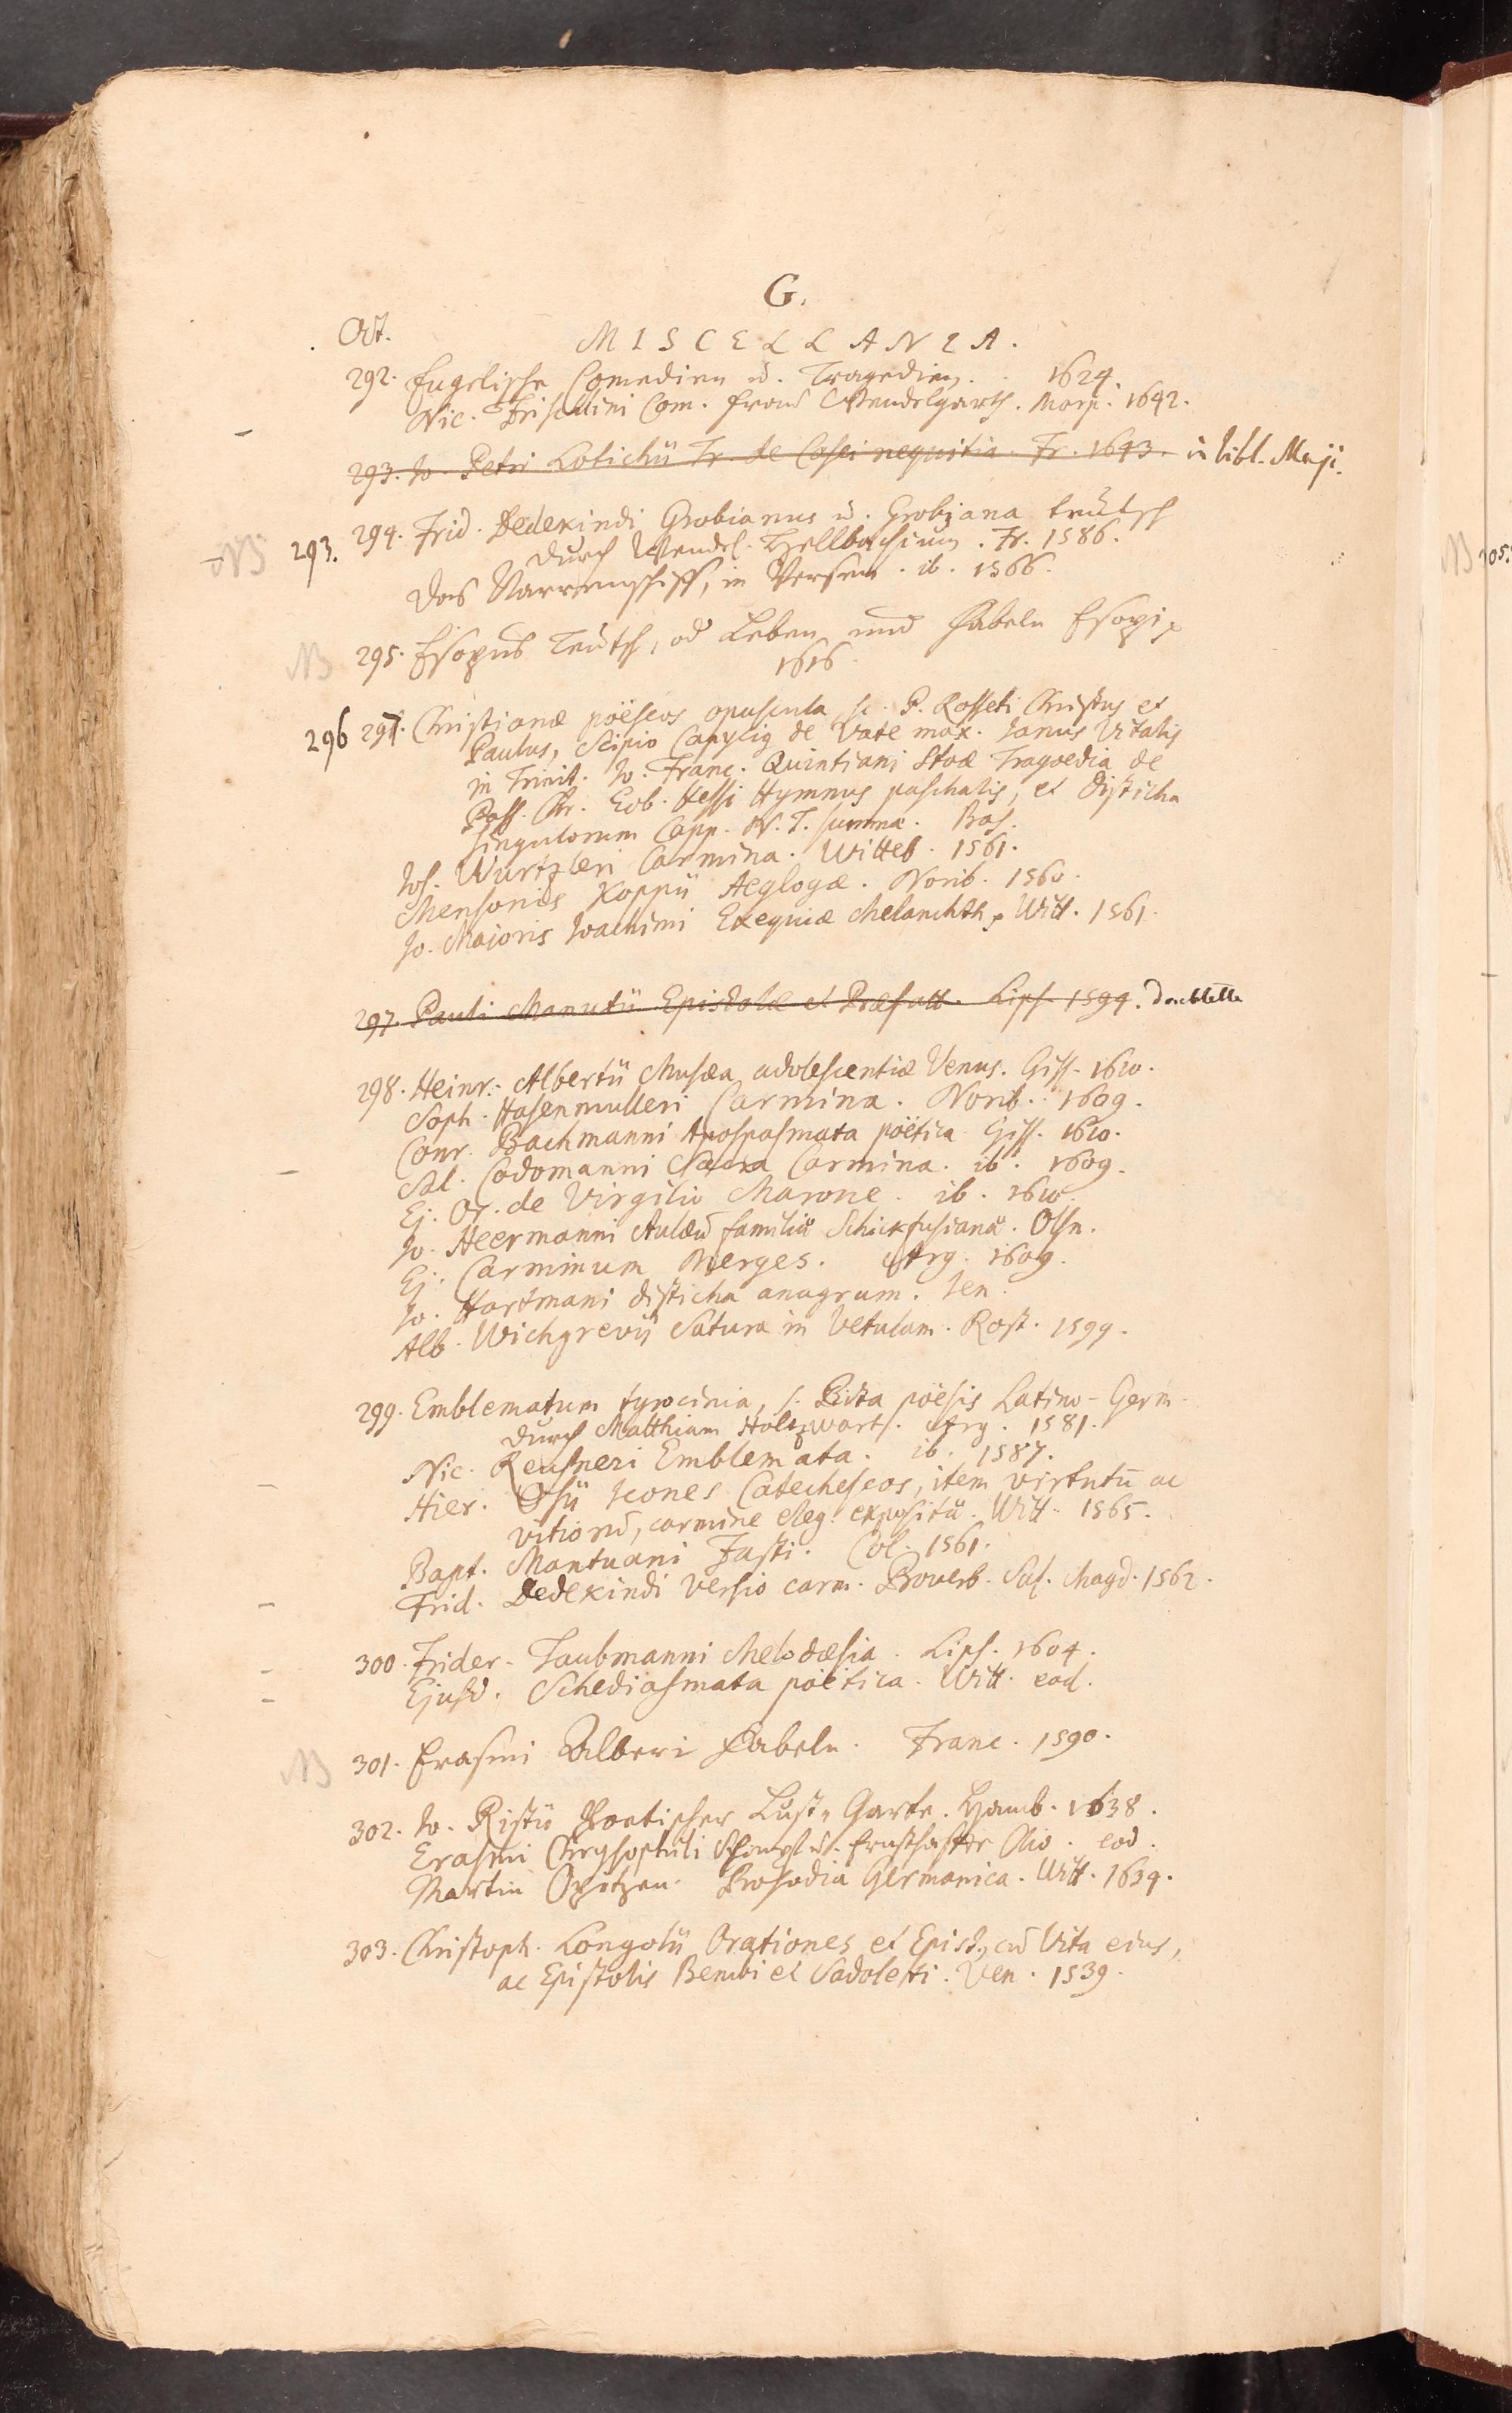 G.
Oct.
MISCELLANEA.
292. Englische Comedien u. Tragedien. 1624.
Nic. Frischlini Com. fraw Wendelgarth. Marp. 1642.
293. Jo. Petri Lotichii Tr. de Casei nequitia. Fr. 1643. in bibl. Maji.
NB 293. 294. Frid. Dedekindi Grobianus u. Grobiana teutsch
durch Wendel. Hellbachium. Fr. 1586.
Das Narrenschiff, in Versen. ib. 1566.
NB 295. Esopus Teutsch, od Leben und Fabeln Esopi
1616.
296 297. Christianæ poëseos opuscula, sc. P. Rosseti Christus et
Paulus, Scipio Capyciq de Vate max. Janus Vitalis
in Trinit. Jo. Franc. Quintiani Stoæ Tragoedia de
Pass. Chr. Eob. Hessi Hymnus paschalis, et disticha
singulorum Capp. N. T. summa. Bas.
Jos. Wurtzleri Carmina. Witteb. 1561.
Mensonis Xoppii Aeglogæ. Norib. 1560.
Jo. Majoris Joachimi Exequiæ Melanchth. Witt. 1561.
297. Pauli Manutii Epistolæ et Præfatt. Lips. 1599. Doublette
298. Heinr. Albertii Musæa adolescentiæ Venus. Giss. 1610.
Soph. Hasenmulleri Carmina. Norib. 1609.
Conr. Bachmanni Apospasmata poëtica. Giss. 1610.
Sal. Codomanni Sacra Carmina. ib. 1609.
Ej. Or. de Virgilio Marone. ib. 1610.
Jo. Heermanni Aulæū familiæ Schickfusianæ. Olsn.
Ej. Carminum Merges. Arg. 1609.
Jo. Hartmani disticha anagram. Jen.
Alb. Wichgrevij Satura in Vetulam. Rost. 1599.
299. Emblematum tyrocinia, s. Picta poësis Latino-Germ.
durch Matthiam Holtzwart. Arg. 1581.
Nic. Reusneri Emblemata. ib. 1587.
Hier. Osii Icones Catecheseos, item virtutū ac
vitiorū, carmine eleg. expositæ. Witt. 1565.
Bapt. Mantuani Fasti. Col. 1561.
Frid. Dedekindi versio carm. Proverb. Sal. Magd. 1562.
300. Frider. Taubmanni Melodæsia. Lips. 1604.
Ejusd. Schediasmata poëtica. Witt. eod.
NB 301. Erasmi Alberi Fabeln. Franc. 1590.
302. Jo. Ristii Poetischer Lust-Garte. Hamb. 1638.
Erasmi Chrysophili Schimpf u. Ernsthafter Olio. eod.
Martin Opitzen Prosodia Germanica. Witt. 1639.
303. Christoph. Longolii Orationes et Epist, cū Vita eius,
ac Epistolis Bembi et Sadoleti. Ven. 1539.
NB 305.